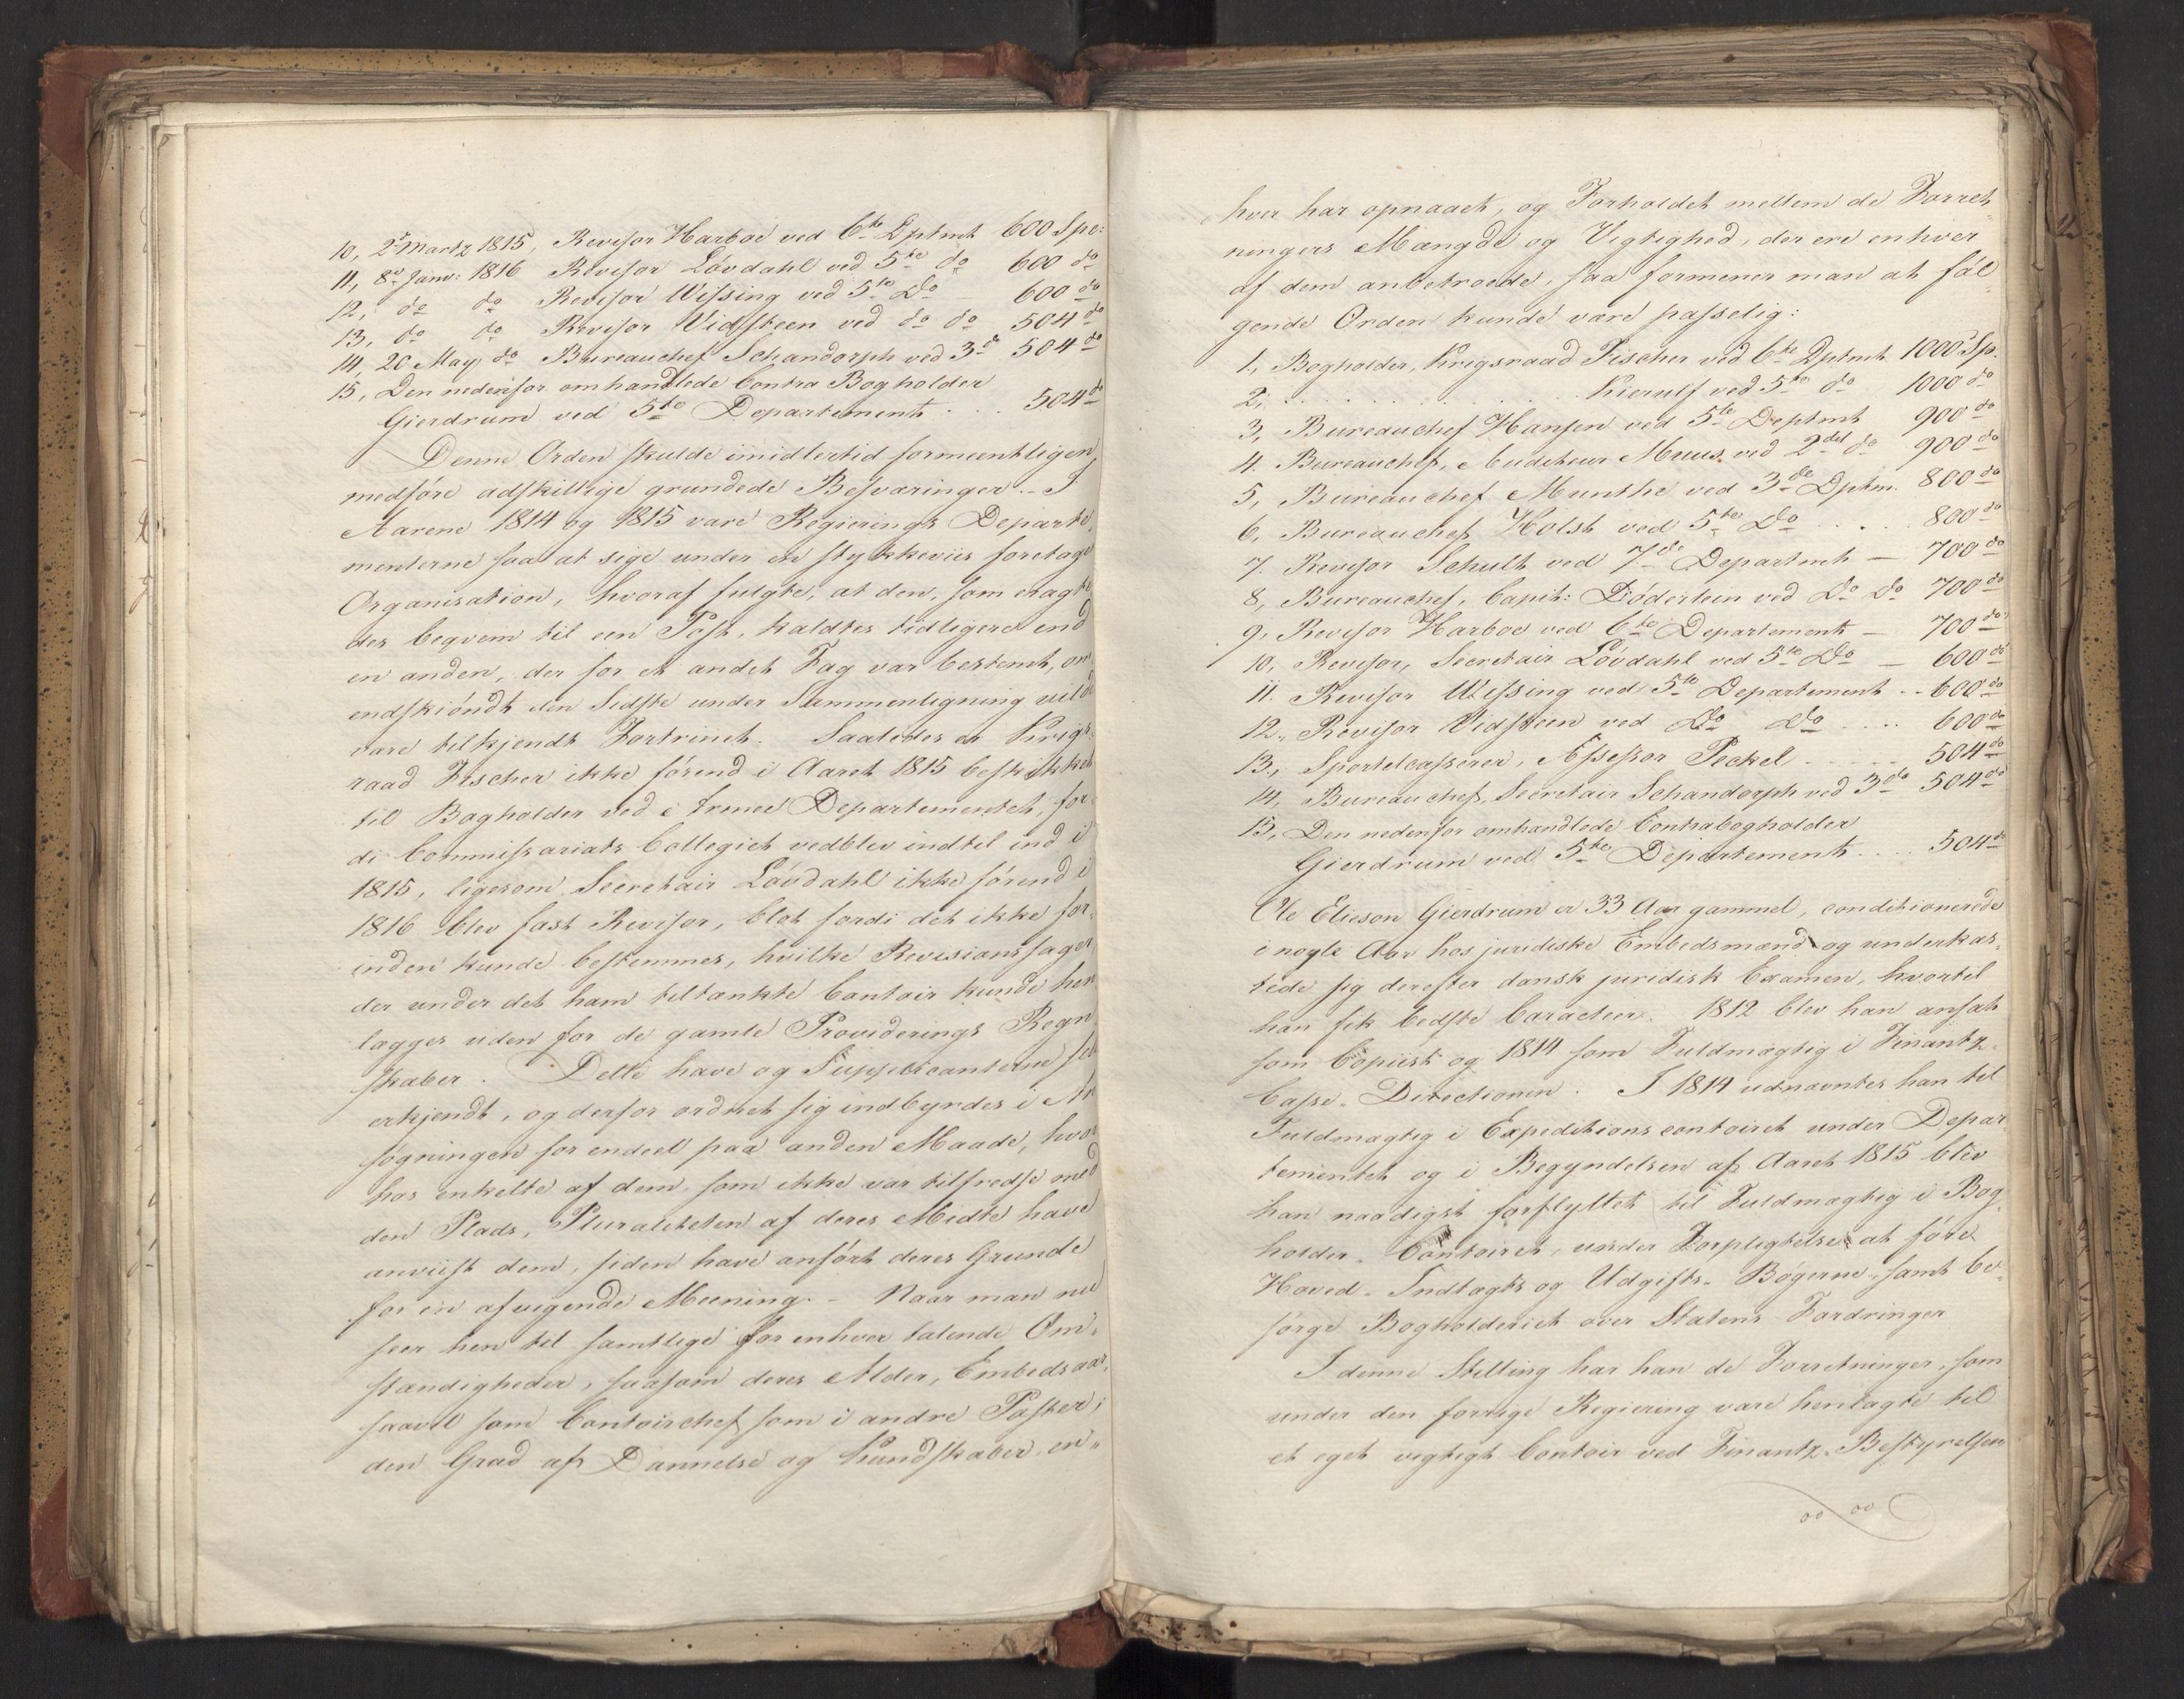 10, 2d Martz 1815, Revisor Harboe ved 6te Dptmt 600 Spe:
11, 8de Janv: 1816 Revisor Lövdahl ved 5te do 600 do
12, do do Revisor Wissing ved 5te Do 600 do
13, do do Revisor Vidsteen ved do do 504 do
14, 20 May do Bureauchef Schandorph ved 3de 504 do
15, Den nedenfor omhandlede Contra Bogholder
Gierdrum ved 5te Departement . . . 504 do
Denne Orden skulde imidlertid formeentligen
medföre adskillige grundede Besværinger. - I
Aarene 1814 og 1815 vare Regierings Departe-
menterne saa at sige under en stykkeviis foretagen
Organisation, hvoraf fulgte, at den, som eragte-
des beqvem til een Post, kaldtes tidligere end
en anden, der for et andet Fag var bestemt, om
endskiöndt den Sidste under Sammenligning vilde
være tilkjendt Fortrinet. Saaledes er Krigs-
raad Fischer ikke förend i Aaret 1815 beskikket
til Bogholder ved Armee Departementet, for-
di Commissariats Collegiet vedblev indtil ind i
1815, ligesom Secretair Lövdahl ikke förend i
1816 blev fast Revisor, blot fordi det ikke for-
inden kunde bestemmes, hvilke Revisionssager
der under det ham tiltænkte Contoir kunde hen-
lægges uden for de gamle Providerings Regn-
skaber. Dette have og Supplicanterne selv
erkjendt, og derfor ordnet sig indbyrdes i An-
sögningen for endeel paa anden Maade, hvor-
hos enkelte af dem, som ikke var tilfredse med
den Plads, Pluraliteten af deres Midte havde
anviist dem, siden have anfört deres Grunde
for en afvigende Meening. - Naar man nu
seer hen til samtlige for enhver talende Om-
stændigheder, saasom deres Alder, Embedsaar,
saavel som Contoirchef som i andre Poster,
den Grad af Dannelse og Kundskaber, en-
hver har opnaaet, og Forholdet mellem de Forret-
ningers Mængde og Vigtighed, der ere enhver
af dem anbetroede, saa formener man at föl-
gende Orden kunde være passelig:
1., Bogholder, Krigsraad Fischer ved 6te Dptmt 1000 Sp.
2, . . . . . . . . Kierulf ved 5te do 1000 do
3, Bureauchef Hansen ved 5te Deptmt 900 do
4. Bureauchef, Auditeur Muus ved 2det do 900 do
5, Bureauchef Munthe ved 3de Dptm. 800 do
6, Bureauchef Holst ved 5te Do . . . . 800 do
7. Revisor Schult ved 7de Departmt — 700 do
8, Bureauchef, Capit: Döderlein ved Do Do 700 do
9, Revisor Harboe ved 6te Departement — 700 do
10, Revisor, Secretair Lövdahl ved 5te Do — 600 do
11. Revisor Wissing ved 5te Departement . - 600 do
12., Revisor Vidsteen ved Do Do . . . . 600 do
13., Sportelcasserer, Assessor Peckel . . . . . 504 do
14, Bureauchef, Secretair Schandorph ved 3de 504 do
15, Den nedenfor omhandlede Contrabogholder
Gierdrum ved 5te Departement . . . . 504 do
Ole Elieson Gierdrum er 33 Aar gammel, conditionerede
i nogle Aar hos juridiske Embedsmænd og underkas-
tede sig derefter dansk juridisk Examen, hvortil
han fik bedste Caracteer. 1812 blev han ansat
som Copiist og 1814 som Fuldmægtig i Finantz-
Casse-Directionen. I 1814 udnævntes han til
Fuldmægtig i Expeditionscontoiret under Depar-
tementet og i Begyndelsen af Aaret 1815 blev
han naadigst forflyttet til Fuldmægtig i Bog-
holder-Contoiret, under Forpligtelse at före
Hoved-Indtægts og Udgifts-Bögerne, samt be-
sörge Bogholderiet over Statens Fordringer
I denne Stilling har han de Forretninger, som
under den forrige Regiering vare henlagte til
et eget vigtigt Contoir ved Finantz-Bestyrelsen